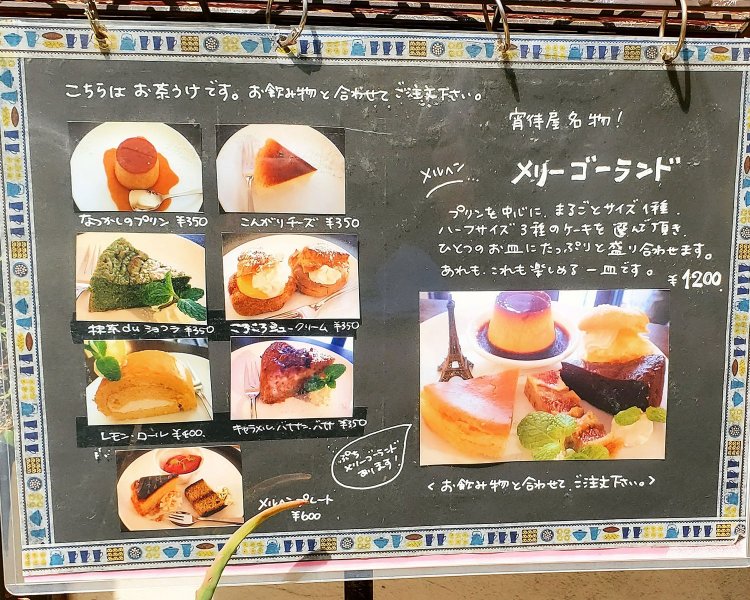 こちらは お茶うけです。お飲み物と合わせてご注文下さい。
なつかしのプリン ¥350
こんがりチーズ ¥350
抹茶duショコラ ¥350
ころころシュークリーム ¥350
レモン・ロール ¥400.
キャラメル・バナナン・バナ ¥350
メルヘンプレート
¥600
ぷち
メリーゴーランド
あります!
宵待屋名物!
メルヘン
メリーゴーランド
プリンを中心に、まるごとサイズ1種、
ハーフサイズ3種のケーキを選んで頂き、
ひとつのお皿にたっぷりと盛り合わせます。
あれも、これも楽しめる一皿です。 ¥1200
<お飲み物と合わせて、ご注文下さい。>